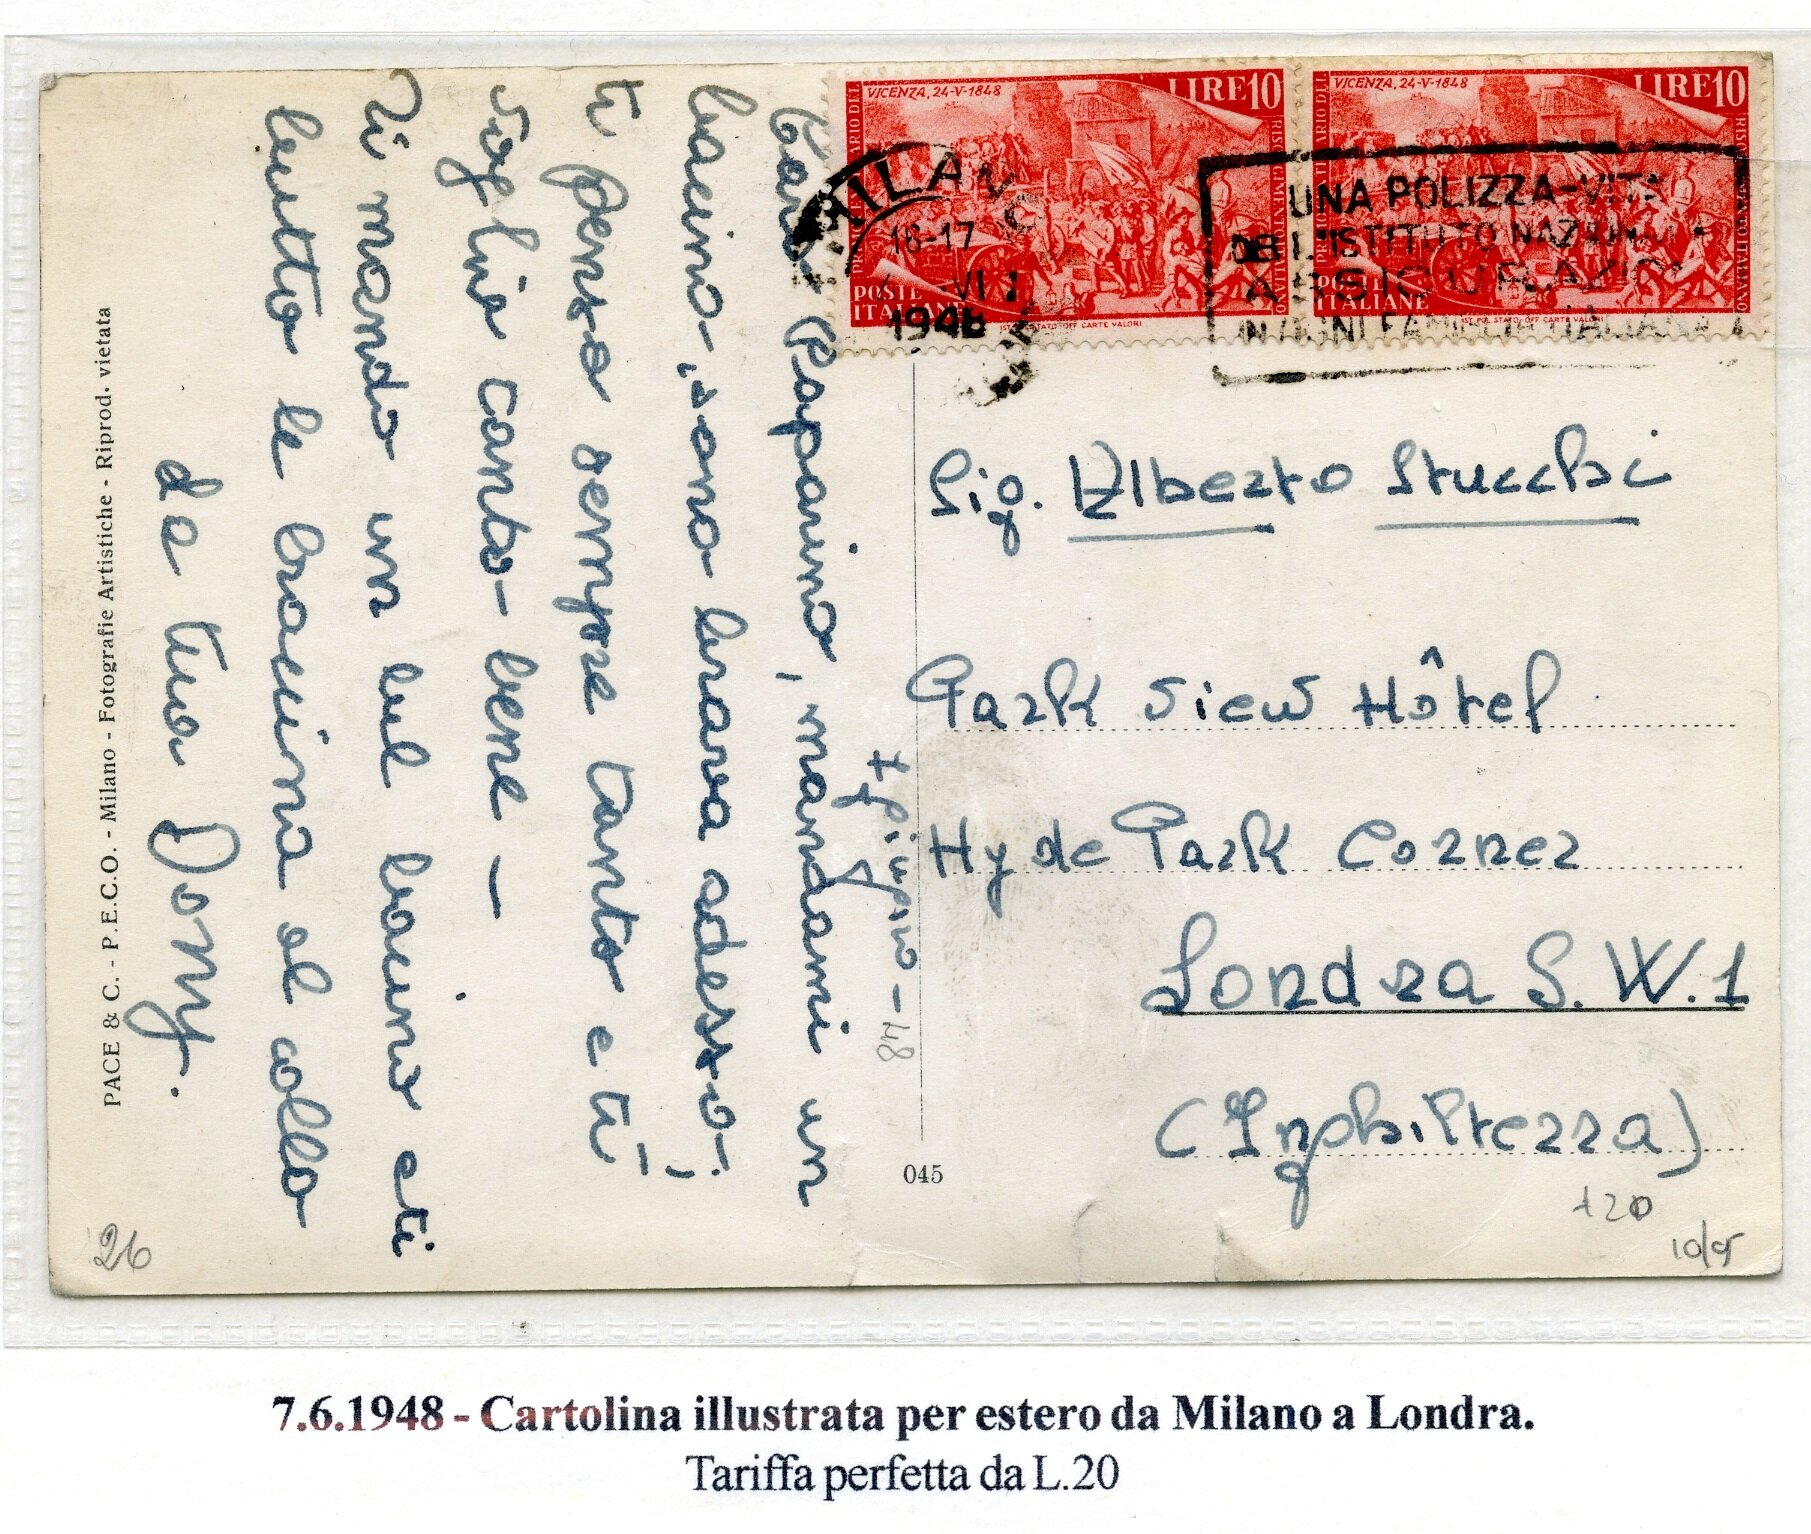 VICENZA, 24-V-1848
LIRE 10
POSTE
ITALIANE
IST. POL. STATO-OFF. CARTE VALORI
VICENZA, 24-V-1848
LIRE 10
POSTE
ITALIANE
IST. POL. STATO-OFF. CARTE VALORI
MILANO
16-17
VI
1948
UNA POLIZZA-VITA
DELL'ISTITUTO NAZIONALE
ASSICURAZIONI
IN OGNI FAMIGLIA ITALIANA
Caro Papaino, mandami un
bacino, sono brava adesso,
ti penso sempre tanto e ti
voglio tanto bene —
Ti mando un bel bacino e ti
butto le braccina al collo
la tua Dony.
7 giugno - 48
Sig. Alberto Stucchi
Park View Hôtel
Hyde Park Corner
Londra S.W.1
(Inghilterra)
PACE & C. - P.E.C.O. - Milano - Fotografie Artistiche - Riprod. vietata
045
26
+20
7.6.1948 - Cartolina illustrata per estero da Milano a Londra.
Tariffa perfetta da L.20